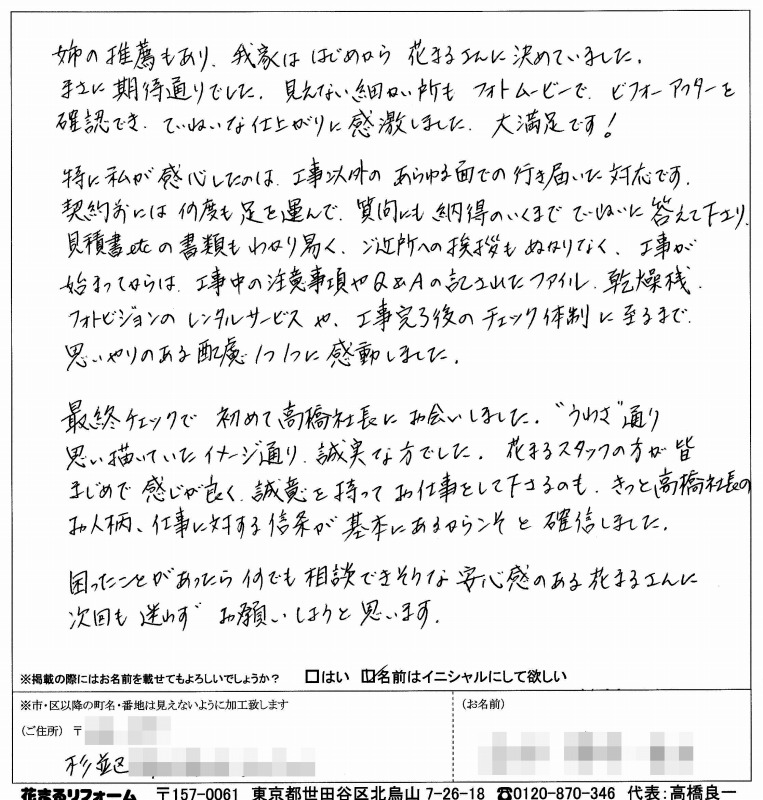 姉の推薦もあり、我家は はじめから 花まるさんに決めていました。
まさに期待通りでした。見えない細かい所も フォトムービーで、ビフォーアフターを
確認でき、ていねいな仕上がりに感激しました。大満足です!
特に私が感心したのは、工事以外の あらゆる面での行き届いた対応です。
契約前には何度も足を運んで、質問にも納得のいくまで ていねいに答えて下さり、
見積書etcの書類もわかり易く、ご近所への挨拶もぬかりなく、工事が
始まってからは、工事中の注意事項やQ&Aの記されたファイル、乾燥機、
フォトビジョンのレンタルサービスや、工事完了後のチェック体制に至るまで、
思いやりのある配慮1つ1つに感動しました。
最終チェックで 初めて高橋社長にお会いしました。"うわさ"通り
思い描いていたイメージ通り、誠実な方でした。花まるスタッフの方が皆
まじめで感じが良く、誠意を持ってお仕事をして下さるのも、きっと高橋社長の
お人柄、仕事に対する信条が基本にあるからこそと確信しました。
困ったことがあったら何でも相談できそうな安心感のある花まるさんに
次回も迷わず お願いしようと思います。
※掲載の際にはお名前を載せてもよろしいでしょうか? □はい □名前はイニシャルにして欲しい
※市・区以降の町名・番地は見えないように加工致します
(お名前)
(ご住所) 〒
杉並区
花まるリフォーム 〒157-0061 東京都世田谷区北烏山 7-26-18 ☎0120-870-346 代表:高橋良一